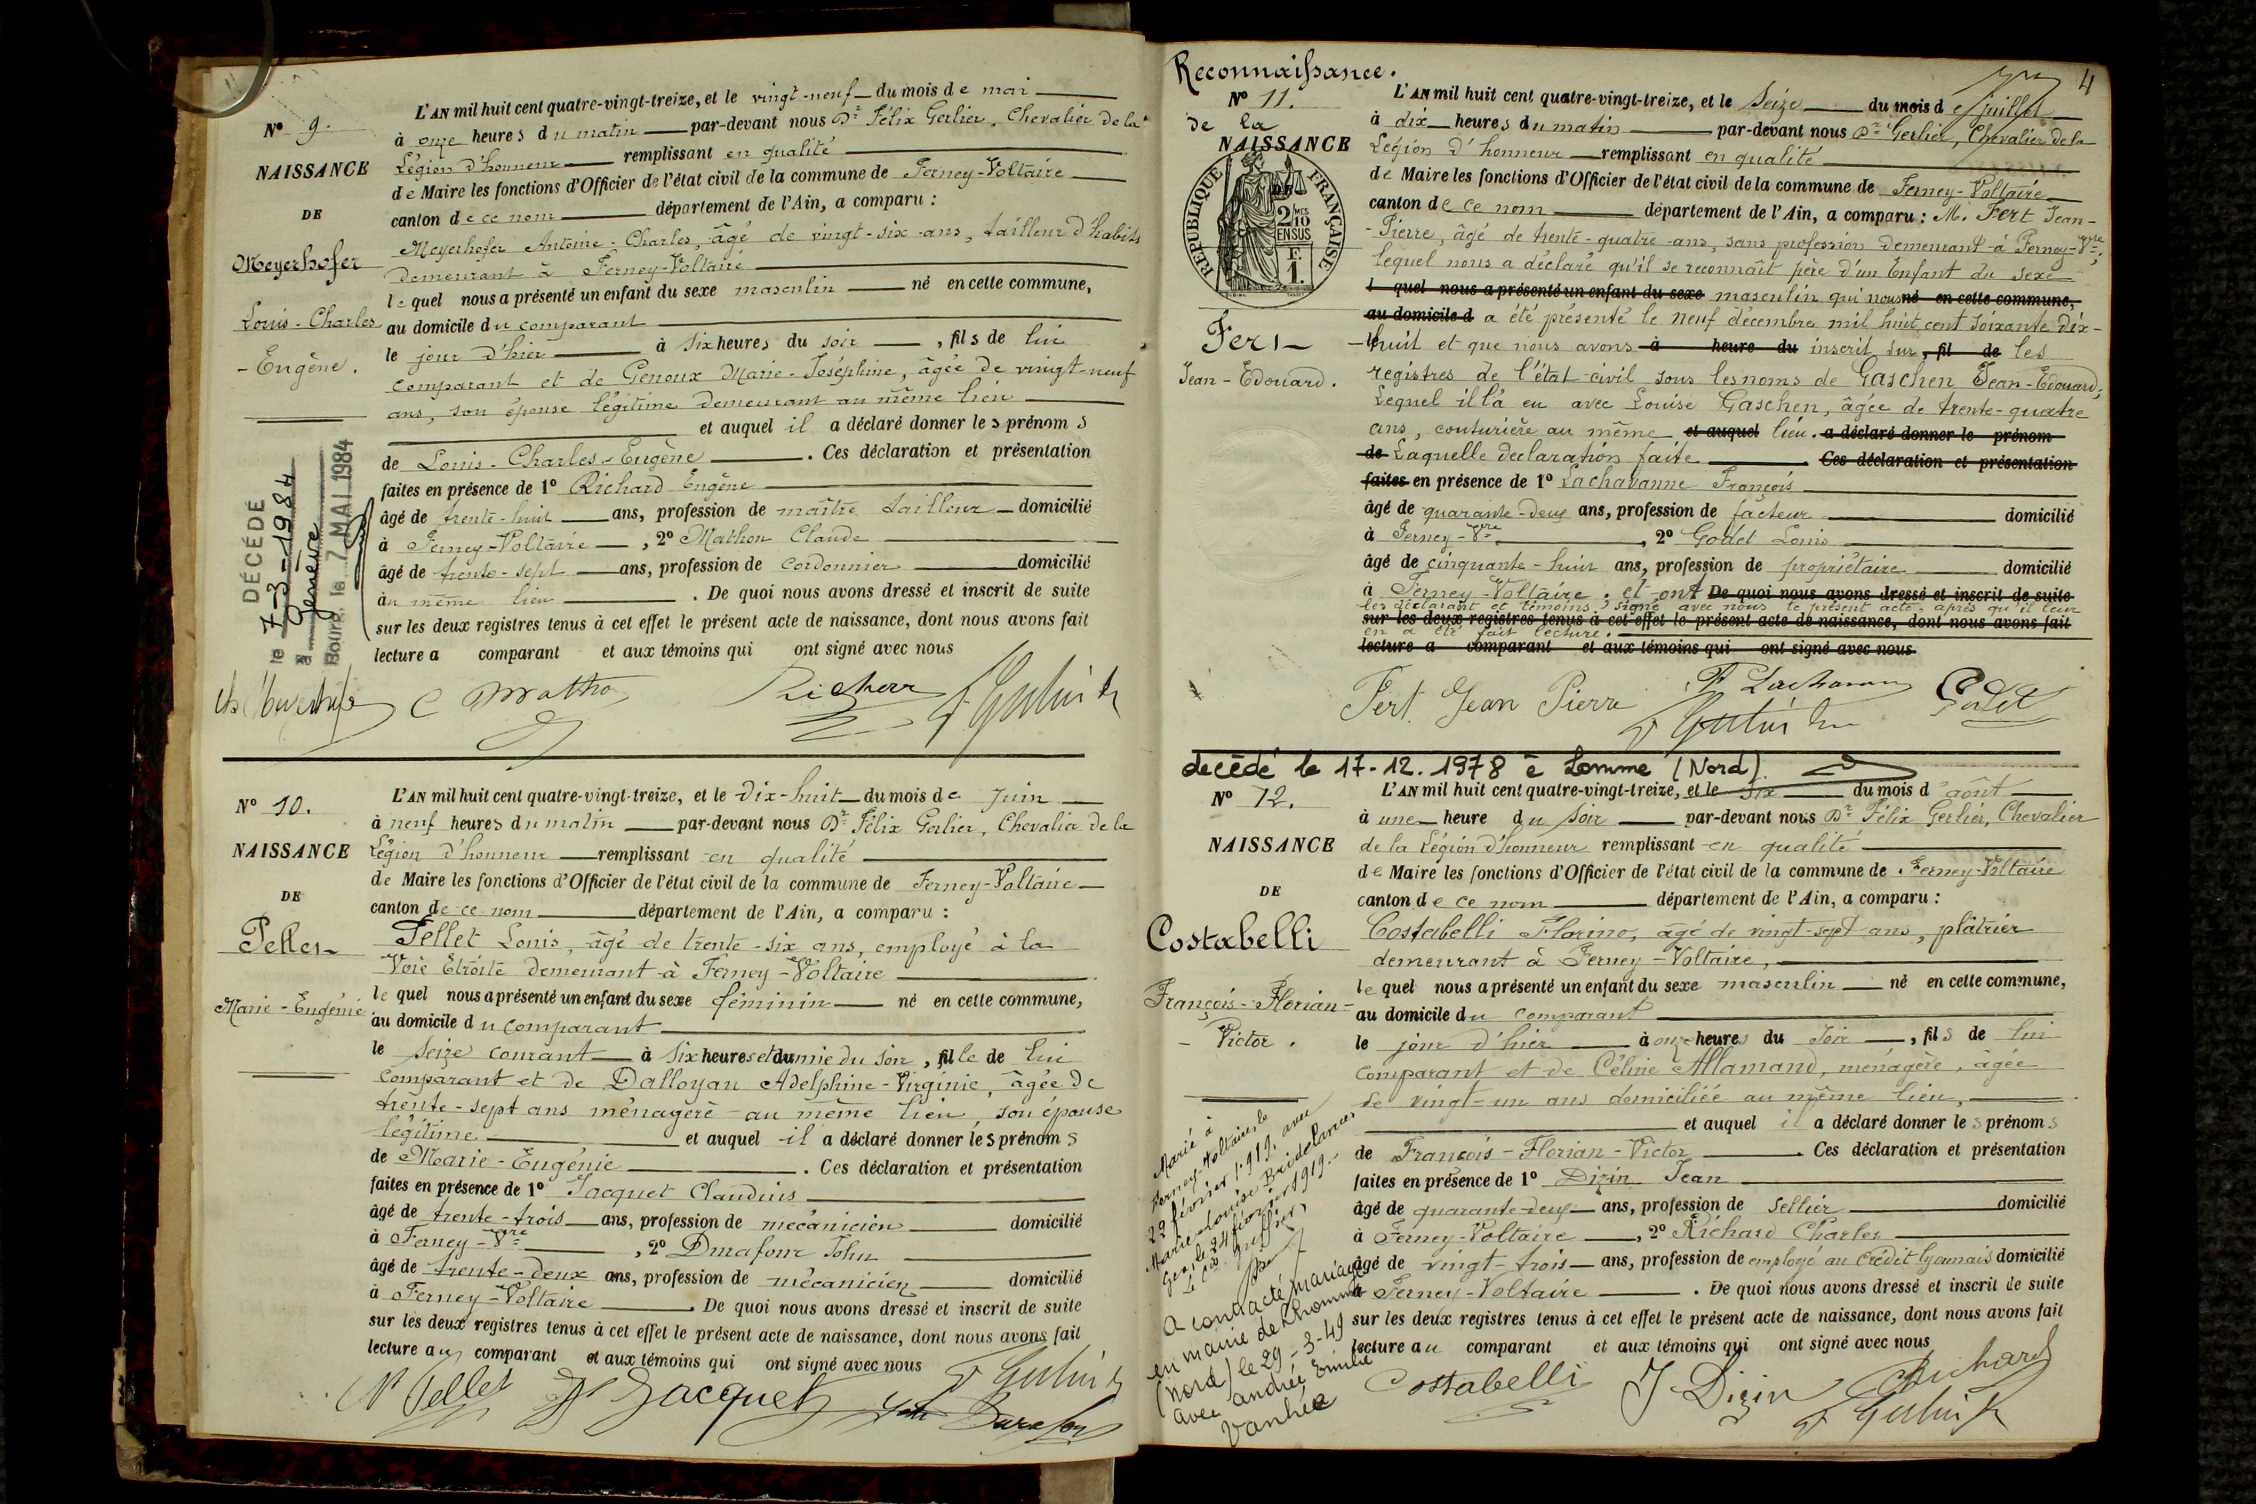 Nº 9.
NAISSANCE
DE
Meyerhofer
Louis-Charles
- Eugène.
DÉCÉDÉ
le 7-3-1984
à Genève
Bourg, le 7 MAI 1984
L'AN mil huit cent quatre-vingt-treize, et le vingt-neuf du mois de mai
à onze heures du matin par-devant nous Dr Félix Gerlier, Chevalier de la
Légion d'honneur remplissant en qualité
de Maire les fonctions d'Officier de l'état civil de la commune de Ferney-Voltaire
canton de ce nom département de l'Ain, a comparu :
Meyerhofer Antoine-Charles, âgé de vingt-six-ans, tailleur d'habits
demeurant à Ferney-Voltaire
lequel nous a présenté un enfant du sexe masculin né en cette commune,
au domicile du comparant
le jour d'hier à six heures du soir, fils de lui
comparant et de Genoux Marie-Joséphine, âgée de vingt-neuf
ans, son épouse légitime demeurant au même lieu
et auquel il a déclaré donner les prénoms
de Louis-Charles-Eugène. Ces déclaration et présentation
faites en présence de 1º Richard Eugène
âgé de trente-huit ans, profession de maître tailleur domicilié
à Ferney-Voltaire, 2º Mathon Claude
âgé de trente-sept ans, profession de cordonnier domicilié
au même lieu. De quoi nous avons dressé et inscrit de suite
sur les deux registres tenus à cet effet le présent acte de naissance, dont nous avons fait
lecture a comparant et aux témoins qui ont signé avec nous
C Mathon
Nº 10.
NAISSANCE
DE
Pellet
Marie-Eugénie
L'AN mil huit cent quatre-vingt-treize, et le dix-huit du mois de Juin
à neuf heures du matin par-devant nous Dr Félix Gerlier, Chevalier de la
Légion d'honneur remplissant en qualité
de Maire les fonctions d'Officier de l'état civil de la commune de Ferney-Voltaire
canton de ce nom département de l'Ain, a comparu :
Pellet Louis, âgé de trente-six ans, employé à la
Voie Étroite demeurant à Ferney-Voltaire
lequel nous a présenté un enfant du sexe féminin né en cette commune,
au domicile du comparant
le seize courant à six heures et demie du soir, fille de lui
comparant et de Dalloyau Adelphine-Virginie, âgée de
trente-sept ans ménagère au même lieu, son épouse
légitime et auquel il a déclaré donner les prénoms
de Marie-Eugénie. Ces déclaration et présentation
faites en présence de 1º Jacquet Claudius
âgé de trente-trois ans, profession de mécanicien domicilié
à Ferney-Vre, 2º Dunafour John
âgé de trente-deux ans, profession de mécanicien domicilié
à Ferney-Voltaire. De quoi nous avons dressé et inscrit de suite
sur les deux registres tenus à cet effet le présent acte de naissance, dont nous avons fait
lecture au comparant et aux témoins qui ont signé avec nous
Pellet Jacquet
4
Reconnaissance.
Nº 11.
de la
NAISSANCE
RÉPUBLIQUE FRANÇAISE
2/10 EN SUS
F. 1.
DE
Fert
Jean-Edouard.
L'AN mil huit cent quatre-vingt-treize, et le Seize du mois de juillet
à dix heures du matin par-devant nous Dr Gerlier, Chevalier de la
Légion d'honneur remplissant en qualité
de Maire les fonctions d'Officier de l'état civil de la commune de Ferney-Voltaire
canton de ce nom département de l'Ain, a comparu : M. Fert Jean-
-Pierre, âgé de trente-quatre-ans, sans profession demeurant à Ferney-Vre,
lequel nous a déclaré qu'il se reconnaît père d'un Enfant du sexe
l quel nous a présenté un enfant du sexe masculin qui nous né en cette commune,
au domicile d a été présenté le neuf décembre mil huit cent soixante dix-
le huit et que nous avons à heure du inscrit sur, fil de les
registres de l'état-civil sous les noms de Gaschen Jean-Edouard,
Lequel il l'a eu avec Louise Gaschen, âgée de trente-quatre
ans, couturière au même et auquel lieu. a déclaré donner le prénom
de Laquelle déclaration faite. Ces déclaration et présentation
faites en présence de 1º Lachavanne François
âgé de quarante-deux ans, profession de facteur domicilié
à Ferney-Vre, 2º Godet Louis
âgé de cinquante-huit ans, profession de propriétaire domicilié
à Ferney-Voltaire. et ont De quoi nous avons dressé et inscrit de suite
les déclarant et témoins, signé avec nous le présent acte, après qu'il leur
sur les deux registres tenus à cet effet le présent acte de naissance, dont nous avons fait
en a été fait lecture.
lecture a comparant et aux témoins qui ont signé avec nous
Fert Jean Pierre
Godet
décédé le 17-12.1978 à Lomme (Nord)
Nº 12.
NAISSANCE
DE
Costabelli
François-Florian-
- Victor.
Marié à
Ferney-Voltaire, le
22 février 1919, avec
Marie-Louise
Gex, le 24 février 1919.
Le Greffier,
a contracté mariage
en mairie de
(Nord) le 29-3-49
avec andrée Emilie
Vanhée
L'AN mil huit cent quatre-vingt-treize, et le Six du mois d'août
à une heure du soir par-devant nous Dr Félix Gerlier, Chevalier
de la Légion d'honneur remplissant en qualité
de Maire les fonctions d'Officier de l'état civil de la commune de Ferney-Voltaire
canton de ce nom département de l'Ain, a comparu :
Costabelli Florino, âgé de vingt-sept ans, plâtrier
demeurant à Ferney-Voltaire,
lequel nous a présenté un enfant du sexe masculin né en cette commune,
au domicile du comparant
le jour d'hier à onze heures du soir, fils de lui
comparant et de Céline Allamand, ménagère, âgée
de vingt-un ans domiciliée au même lieu,
et auquel il a déclaré donner les prénoms
de François-Florian-Victor. Ces déclaration et présentation
faites en présence de 1º Dizin Jean
âgé de quarante-deux ans, profession de sellier domicilié
à Ferney-Voltaire, 2º Richard Charles
âgé de vingt-trois ans, profession de employé au Crédit lyonnais domicilié
à Ferney-Voltaire. De quoi nous avons dressé et inscrit de suite
sur les deux registres tenus à cet effet le présent acte de naissance, dont nous avons fait
lecture au comparant et aux témoins qui ont signé avec nous
Costabelli J Dizin Richard